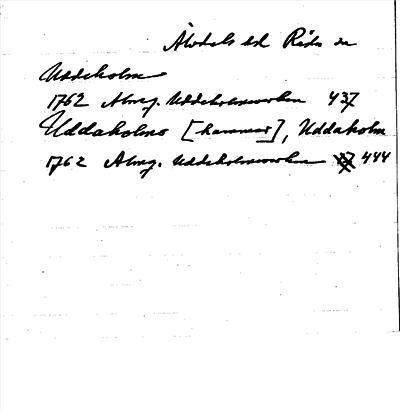 Åmåls hd
Uddeholm
1762 Almg. Uddeholmsverken 437
Uddaholms [hammar], Uddaholm
1762 Almg. Uddeholmsverken 444